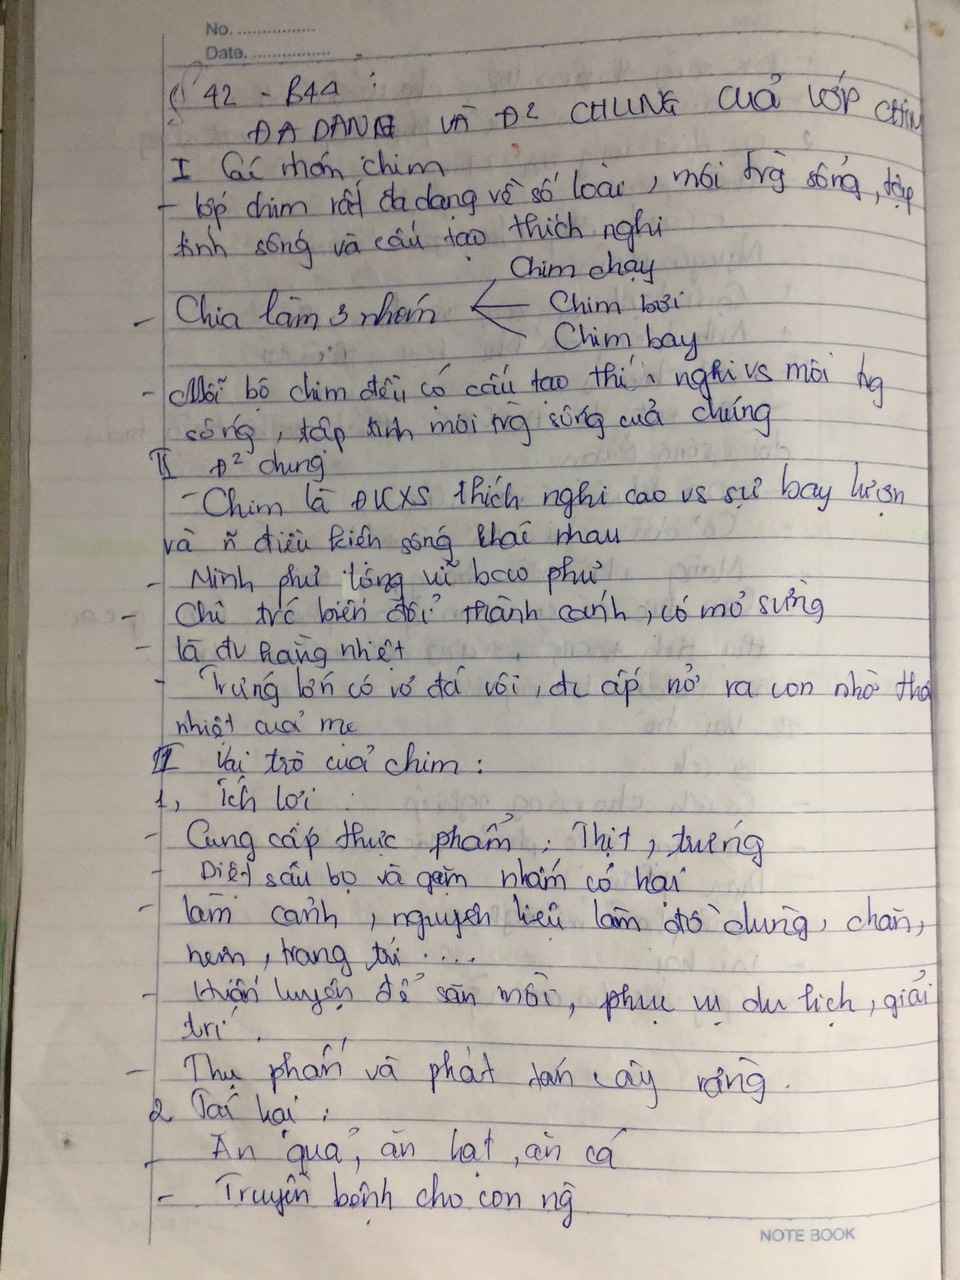 No. ................
Date. ................
42 - B44 :
ĐA DẠNG VÀ Đ² CHUNG CUẢ LỚP CHIM
I Các nhóm chim
- lớp chim rất đa dạng về số loài, môi trg sống, tập
tính sống và cấu tạo thích nghi
Chim chạy
- Chia làm 3 nhóm Chim bơi
Chim bay
- Mỗi bộ chim đều có cấu tạo nghi vs môi trg
sống, tập tính môi trg sống cuả chúng
II Đ² chung
- Chim là ĐVCXS thích nghi cao vs sự bay lượn
và ñ điều kiện sống khác nhau
- Mình phủ lông vũ bao phủ
- Chi trc biến đổi thành cánh, có mỏ sừng
- là đv hằng nhiệt
- Trứng lớn có vỏ đá vôi, đc ấp nở ra con nhờ thâ
nhiệt cuả mẹ
III Vai trò cuả chim :
1, Ích lợi :
- Cung cấp thực phẩm : Thịt, trứng
- Diệt sâu bọ và gặm nhấm có hại
- làm cảnh, nguyên liệu làm đồ dùng, chăn,
nệm, trang trí .....
- Huấn luyện để săn mồi, phục vụ du lịch, giải
trí.
- Thụ phấn và phát tán cây rừng.
2 Tác hại :
- Ăn quả, ăn hạt, ăn cá
- Truyền bệnh cho con ng
NOTE BOOK